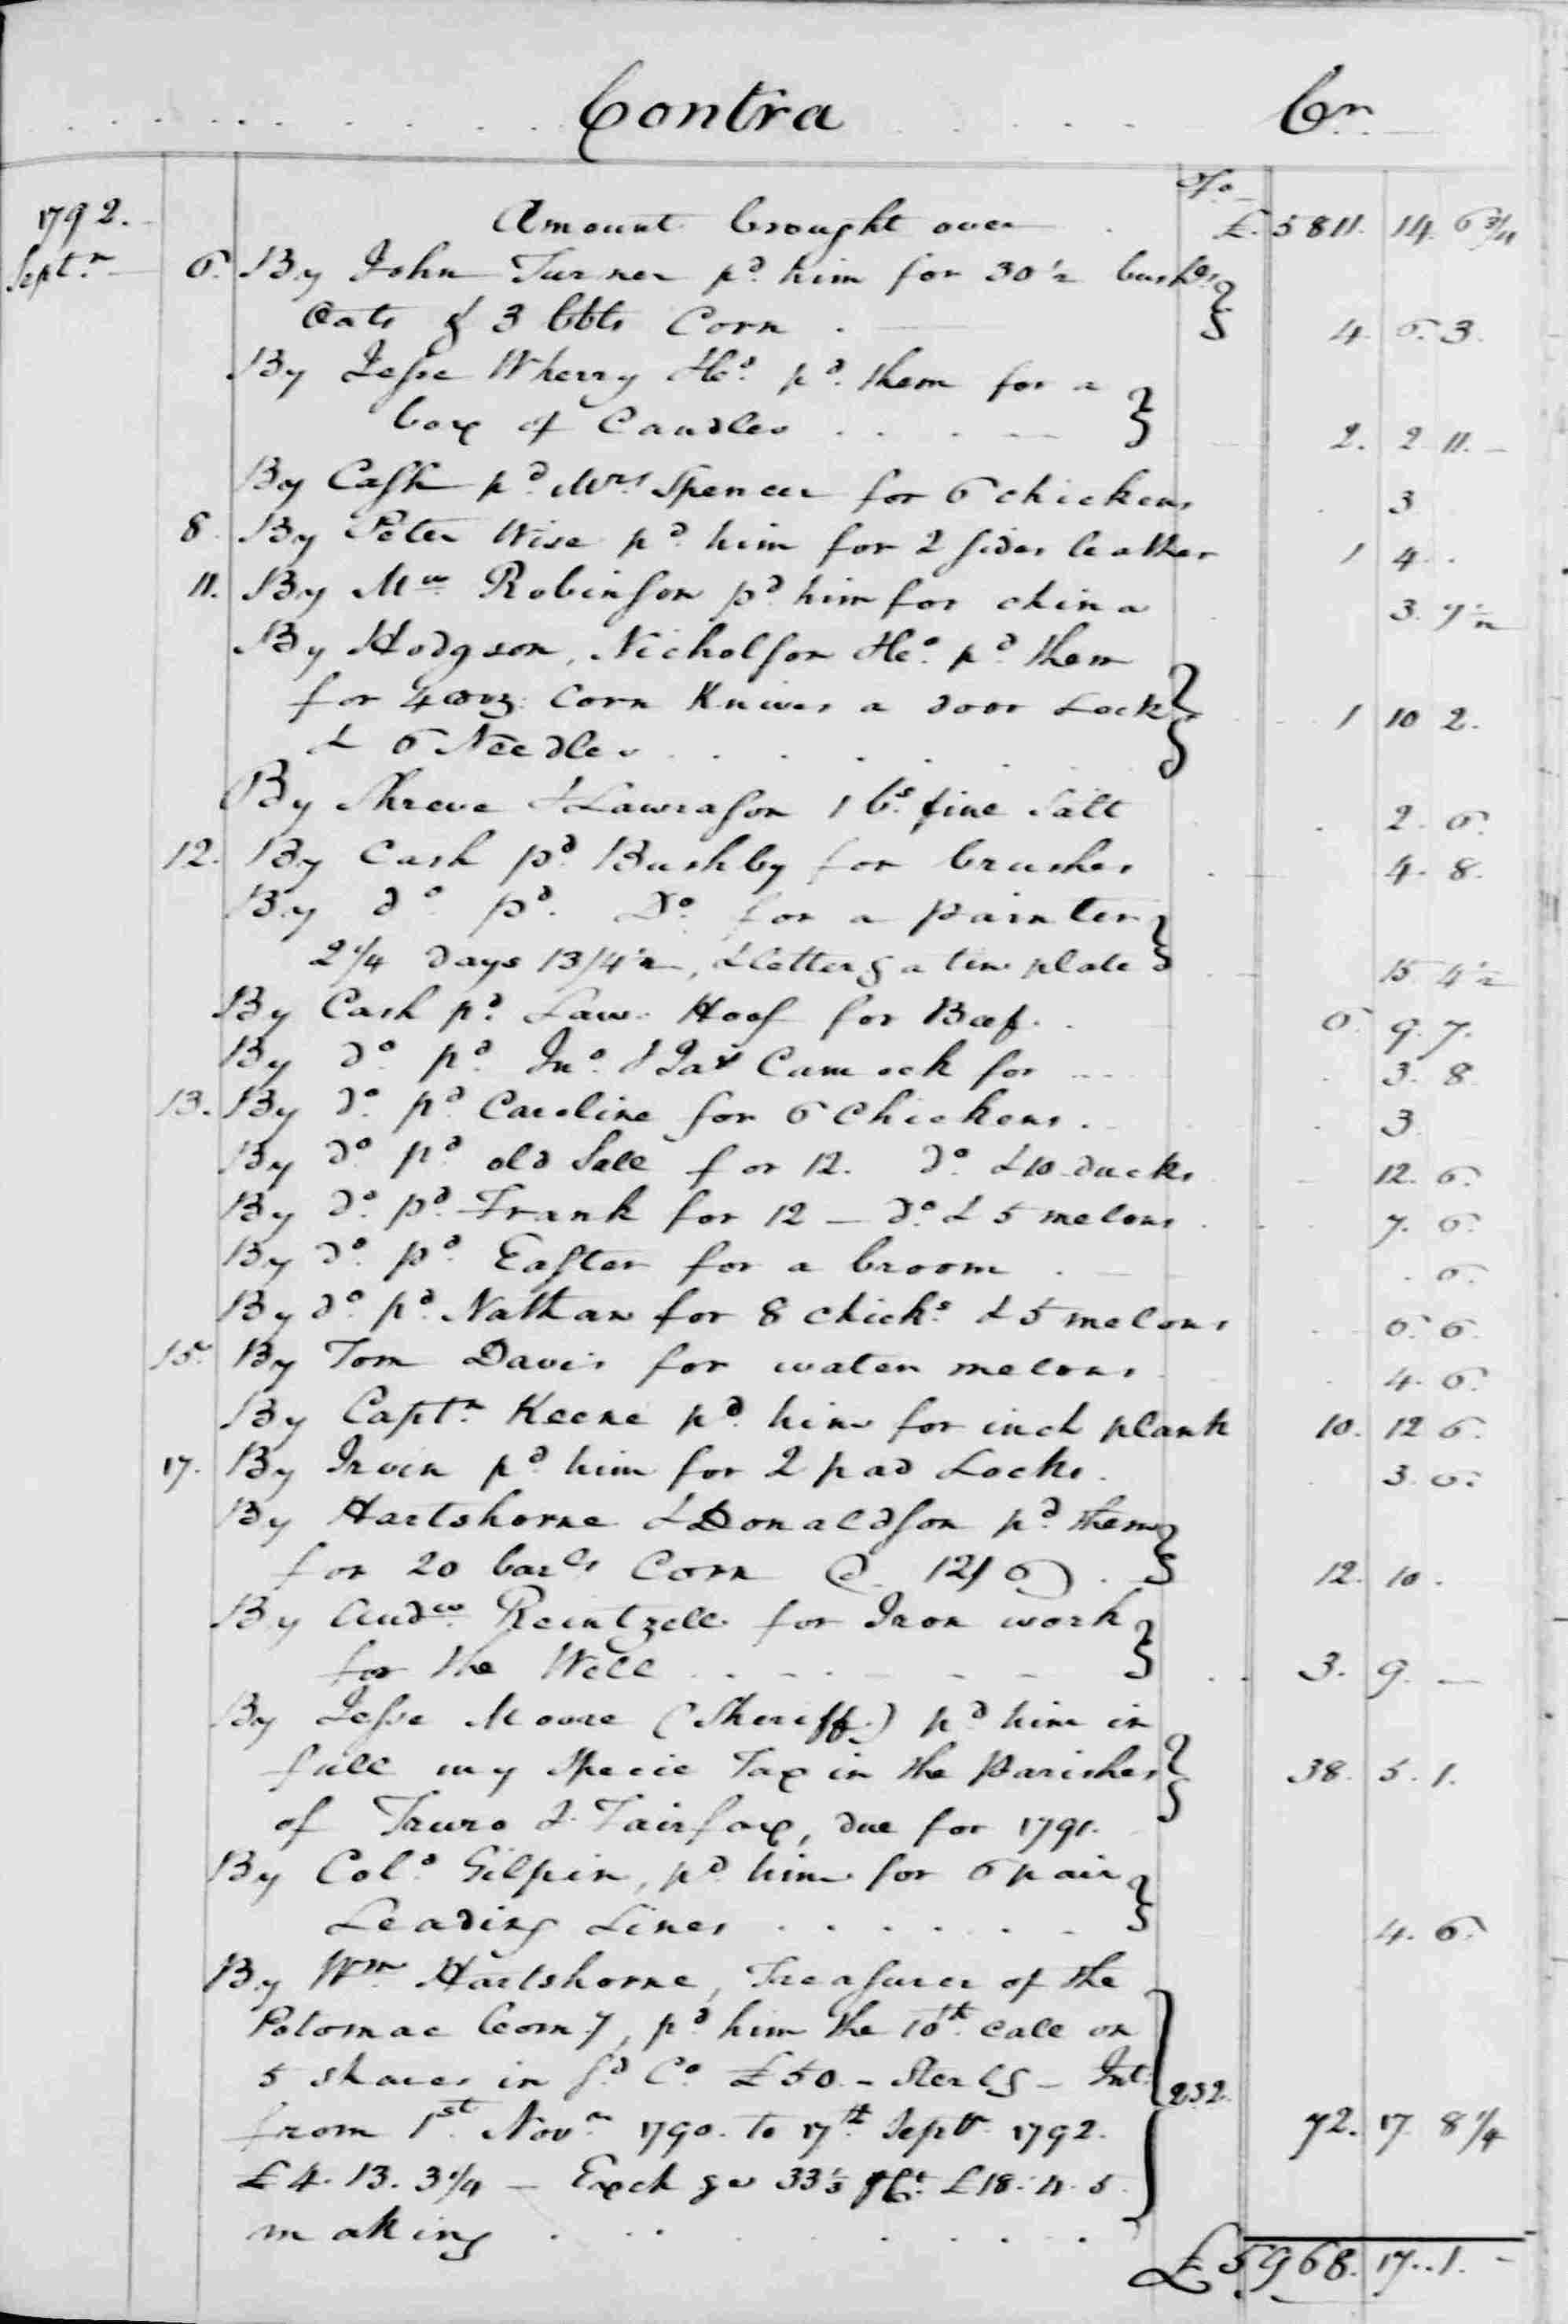 Contra Cr.
fo.
1792. Amount brought over £. 5811. 14. 6 3/4
Septr. 6. By John Turner pd. him for 30 1/2 bushs.
Oats & 3 bbls Corn . 4. 6. 3.
By Jesse Wherry &Co. pd. them for a
box of Candles . . . . 2. 2 11.
By Cash pd. Mrs. Spencer for 6 chickens 3
8. By Peter Wise pd. him for 2 sides leather 1 4.
11. By Mw. Robinson pd. him for china 3. 7 1/2
By Hodgson, Nicholson &Co. pd. them
for 4 doz. Corn Knives a door Lock
& 6 Needles . . . . . . 1 10 2.
By Shreve & Lawrason 1 bs. fine Salt 2. 6.
12. By Cash pd. Bushby for brushes 4. 8.
By do. pd. Do. for a painter
2 1/4 days 13/4 1/2, & letterg a tin plate 15. 4 1/2
By Cash pd. Law. Hoof for Beef. 6. 9. 7.
By do. pd. Jno. & Jas for 3. 8
13. By do. pd. Caroline for 6 Chickens. 3
By do. pd. old Sall for 12. do. & 10 ducks 12. 6.
By do. pd. Frank for 12 — do. & 5 melons 7. 6.
By do. pd. Easter for a broom . 6.
By do. pd. Nathan for 8 chicks. & 5 melons 6. 6.
15. By Tom Davis for water melons 4. 6.
By Captn. Keene pd. him for inch plank 10. 12 6.
17. By Irvin pd. him for 2 pad Locks. 3. 6.
By Hartshorne & Donaldson pd. them
for 20 barls. Corn @ 12/6 . 12. 10.
By Andw. Reintzell for Iron work
for the Well . . . . 3. 9. —
By Jesse Moore (Sheriff) pd. him in
full my Specie Tax in the Parishes 38. 5. 1.
of Truro & Fairfax, due for 1791.
By Colo. Gilpin, pd. him for 6 pair
Leading Lines . . . . . . 4. 6.
By Wm. Hartshorne, Treasurer of the
Potomac Comy, pd. him the 10th. call on
5 shares in sd. Co. £50 - Sterlg - Int. 232.
from 1st. Novr. 1790. to 17th. Septr. 1792. 72. 17. 8 1/4
£4. 13. 3 1/4 — Exchge 33 1/3 pCt. £18. 4. 5
making . . . . . . . .
£5968. 17. 1.